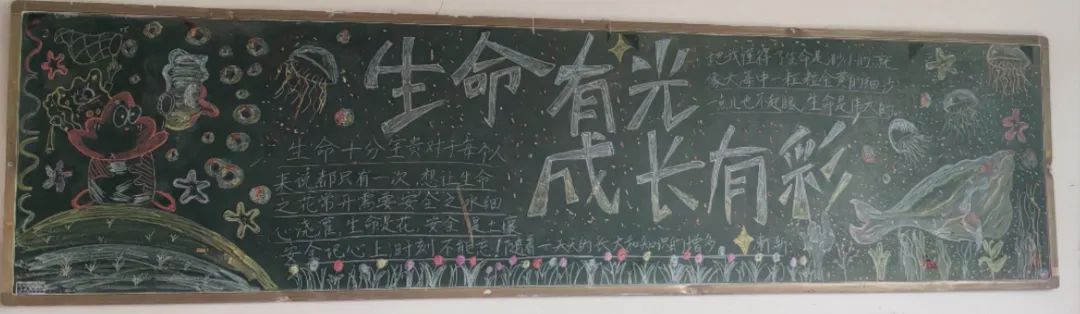 生命有光
成长有彩
生命十分宝贵对于每个人
来说都只有一次,想让生命
之花常开需要安全之水细
心浇灌,生命是花,安全是土壤
安全记心上,时刻不能忘!随着一天天的长大和知识的增多 渐渐
地我懂得了生命是渺小的,就
象大海中一粒粒金黄的细沙
一点儿也不起眼,生命是伟大的